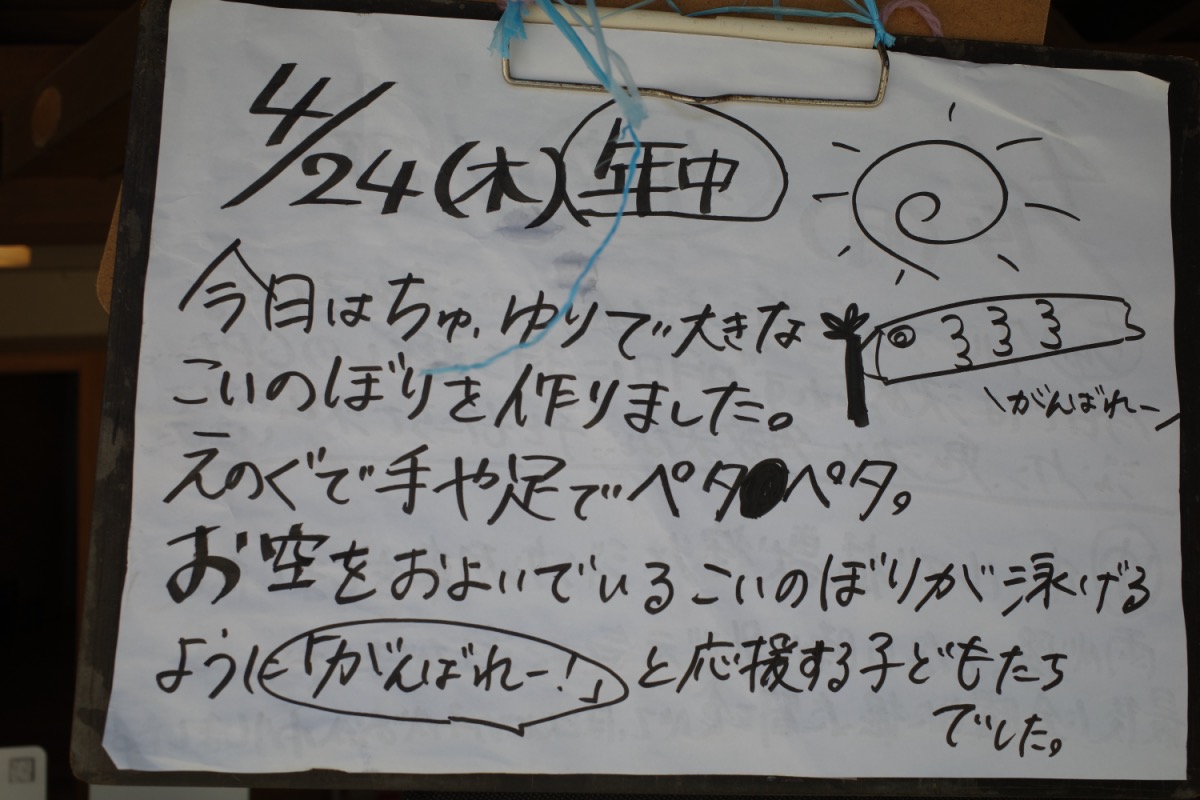 4/24(木)年中
今日はちゅ,ゆりで大きな
こいのぼりを作りました。
\がんばれー/
えのぐで手や足でペタペタ。
お空をおよいでいるこいのぼりが泳げる
ように「がんばれー!」と応援する子どもたち
でした。